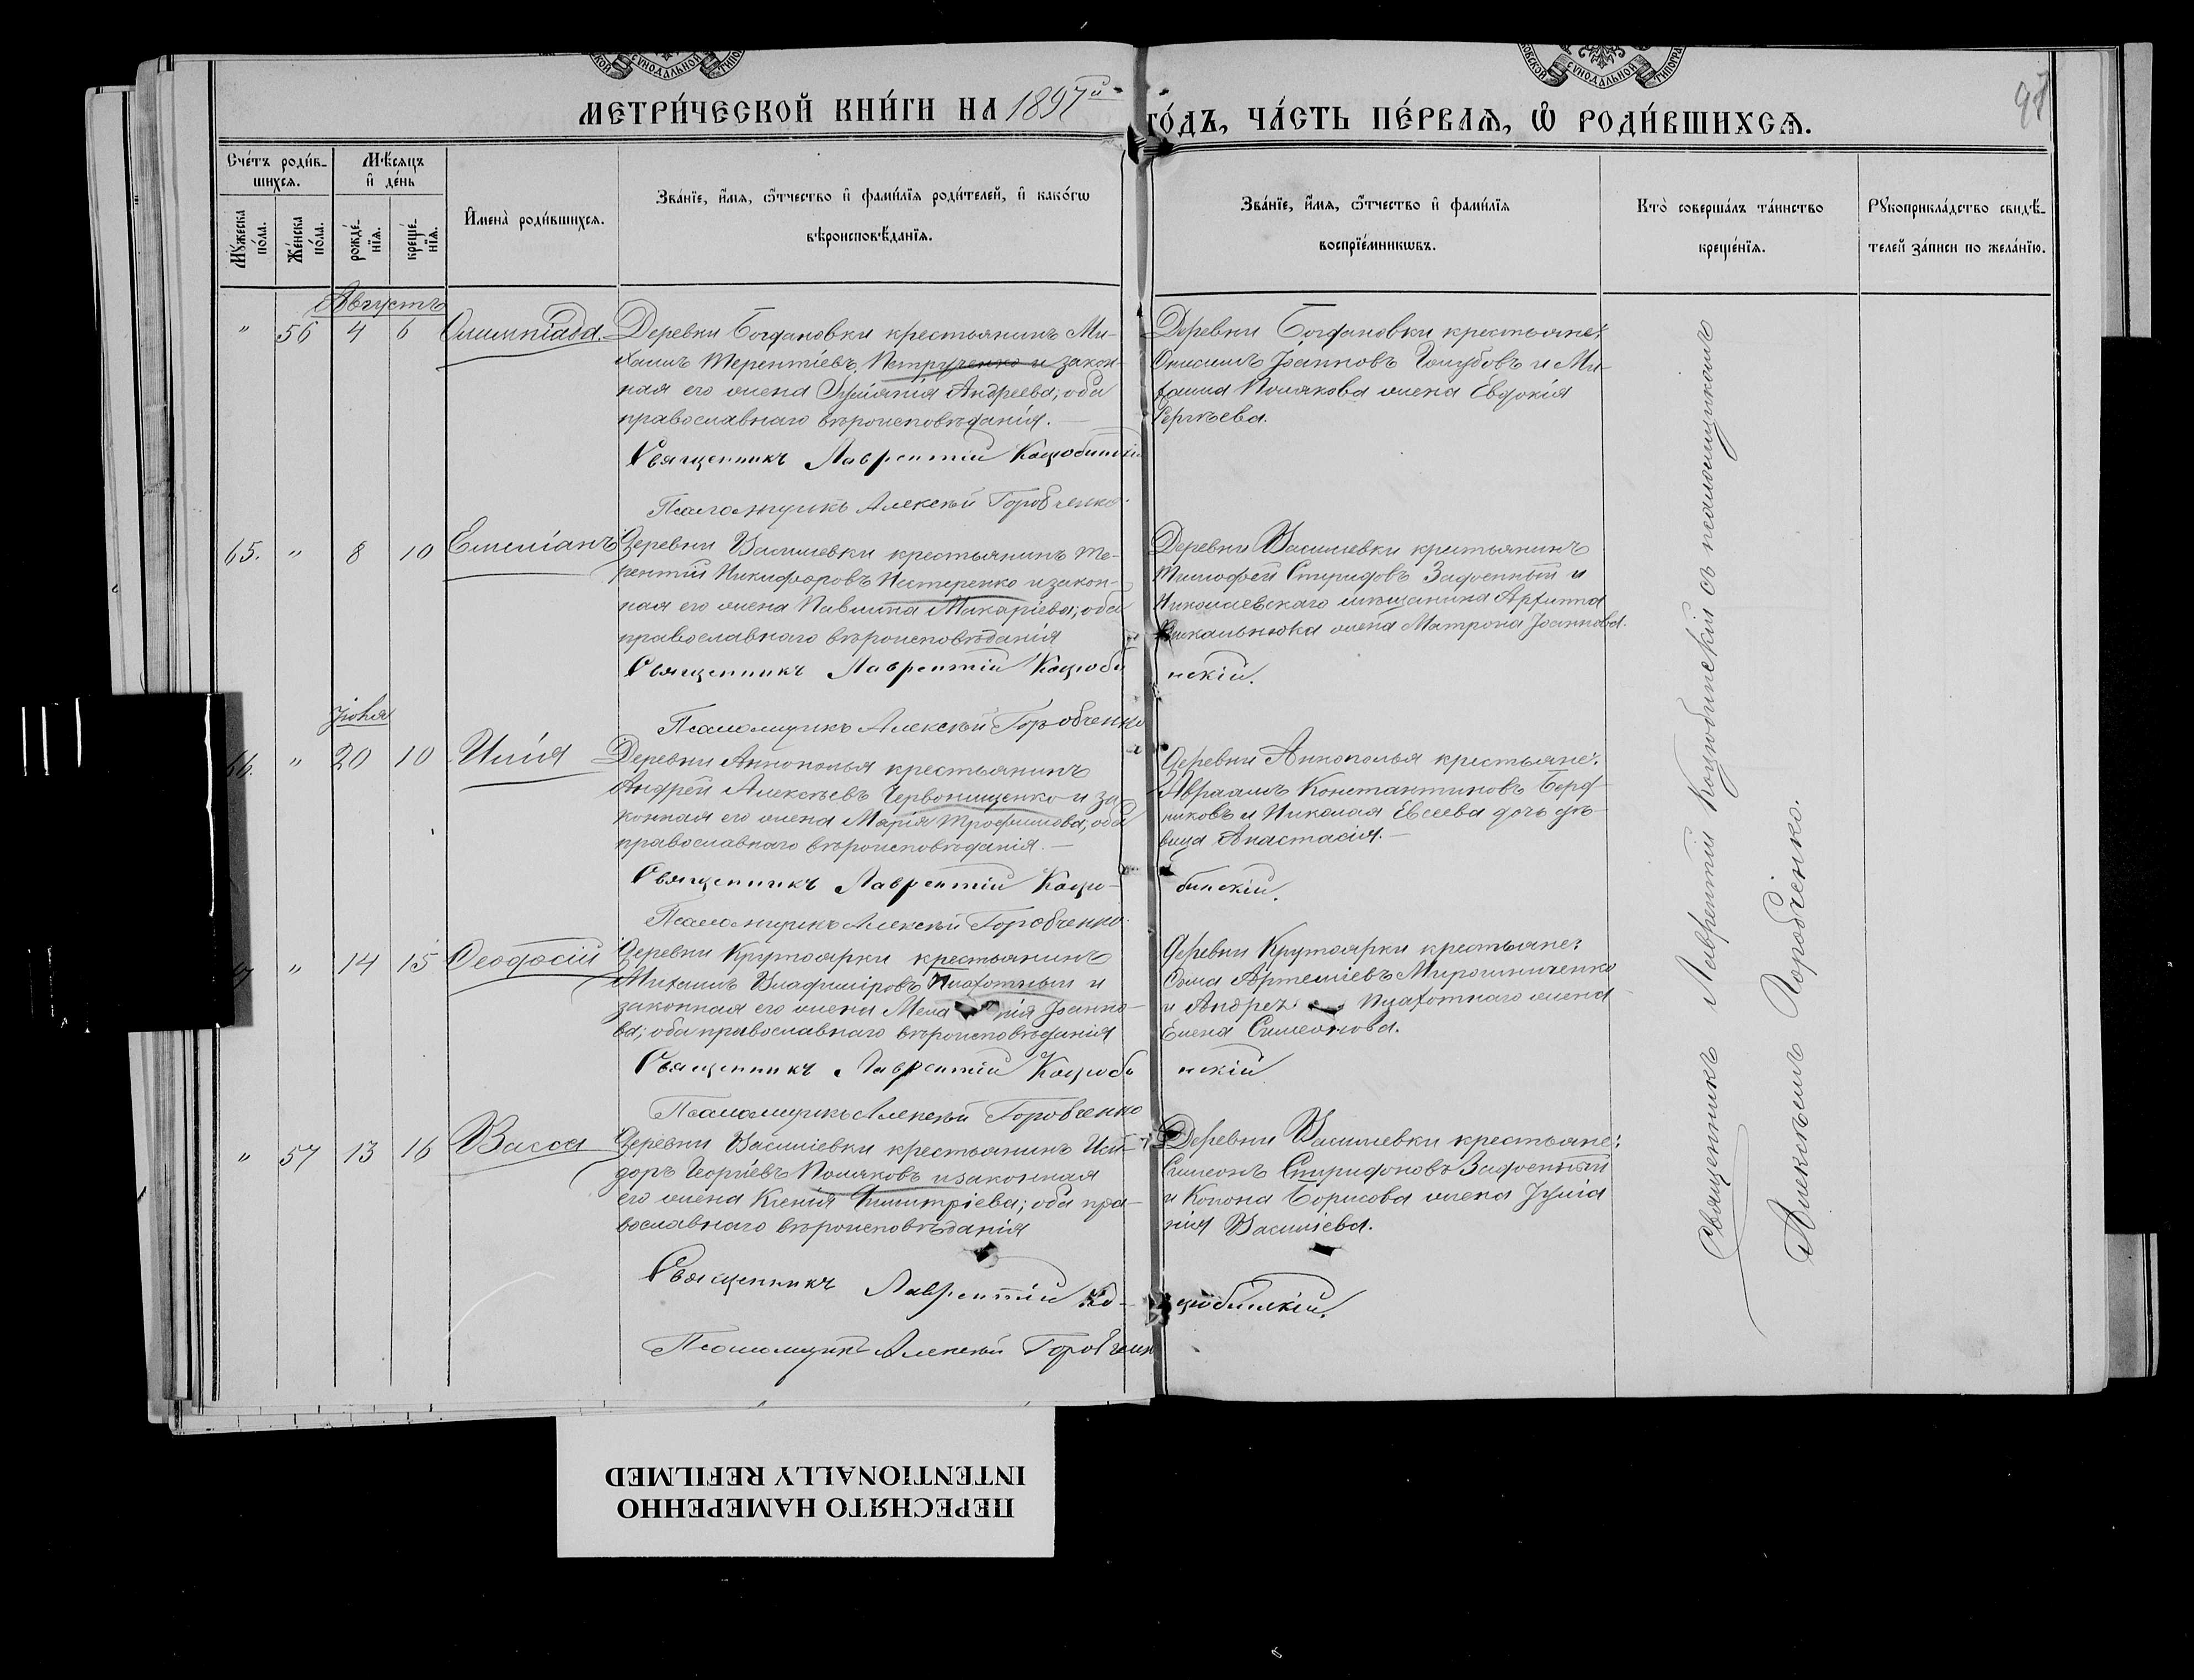 МЕТРИ́ЧЕСКОЙ КНИ́ГИ НА 1897й
ГО́ДЪ, ЧА́СТЬ ПЕ́РВАѦ, Ѡ҆ РОДИ́ВШИХСѦ.
97
Сче́тъ роди́в-
шихсѧ.
Мѣ́сѧцъ
и҆ де́нь
Мꙋ́жеска
по́ла.
Же́нска
по́ла.
рожде́-
нїѧ.
креще́-
нїѧ.
И҆мена̀ роди́вшихсѧ.
Зва́нїе, и҆́мѧ, ѻ҆́тчество и҆ фами́лїѧ роди́телей, и҆ како́гѡ
вѣроисповѣ́данїѧ.
Зва́нїе, и҆́мѧ, ѻ҆́тчество и҆ фами́лїѧ
воспрїе́мникѡвъ.
Кто̀ соверша́лъ та́инство
креще́нїѧ.
Рꙋкоприкла́дство свидѣ́-
телей за́писи по жела́нїю.
Августъ
" 56 4 6 Олимпіада.
Деревни Богдановки крестьянинъ Ми-
хаилъ Терентіевъ Петрученко и закон-
ная его жена Іуліанія Андреева; оба
православнаго вѣроисповѣданія.
Священникъ Лаврентій Коцюбинскій
Псаломщикъ Алексѣй Горобченко.
Деревни Богдановки крестьяне:
Онисимъ Іоанновъ Голубовъ и Ми-
хаила Полякова жена Евдокія
Сергѣева.
65. " 8 10 Емиліанъ
Деревни Васильевки крестьянинъ Те-
рентій Никифоровъ Нестеренко и закон-
ная его жена Павлина Макаріева; оба
православнаго вѣроисповѣданія
Священникъ Лаврентій Коцюби
нскій.
Псаломщикъ Алексѣй Горобченко
Деревни Васильевки крестьянинъ
Тимофей Спиридовъ Задоенный и
Николаевскаго мѣщанина
жена Матрона Іоаннова.
Іюля
66. " 20 10 Илія
Деревни Аннополья крестьянинъ
Андрей Алексѣевъ Червонищенко и за-
конная его жена Марія Трофимова; оба
православнаго вѣроисповѣданія.
Священникъ Лаврентій Коцю-
бинскій.
Псаломщикъ Алексѣй Горобченко.
Деревни Аннополья крестьяне:
Авраамъ Константиновъ Берд-
никовъ и Николая Евсеева дочь дѣ-
вица Анастасія.
" 14 15 Ѳеодосій
Деревни Крутоярки крестьянинъ
Михаилъ Владиміровъ Пхотный и
законная его жена Меланія Іоанно-
ва; оба православнаго вѣроисповѣданія
Священникъ Лаврентій Коцюби
нскій
Псаломщикъ Алексѣй Горобченко
Деревни Крутоярки крестьяне:
Ѳома Артеміевъ Мирошниченко
и Андрея жена
Елена Симеонова.
" 57 13 16 Васса
Деревни Васильевки крестьянинъ Иси-
доръ Георгіевъ Поляковъ и законная
его жена Ксенія Димитріева; оба пра-
вославнаго вѣроисповѣданія
Священникъ Лаврентій Ко-
цюбинскій.
Псаломщикъ Алексѣй Горобченко
Деревни Васильевки крестьяне:
Симеонъ Спиридоновъ Задоенный
и Конона Борисова жена Іуліа
нія Васильева.
Священникъ Лаврентій Коцюбинскій съ псаломщикомъ
Алексѣемъ Горобченко.
ПЕРЕСНЯТО НАМЕРЕННО
INTENTIONALLY REFILMED